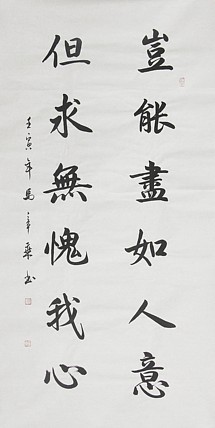 豈能盡如人意
但求無愧我心
壬寅年馬